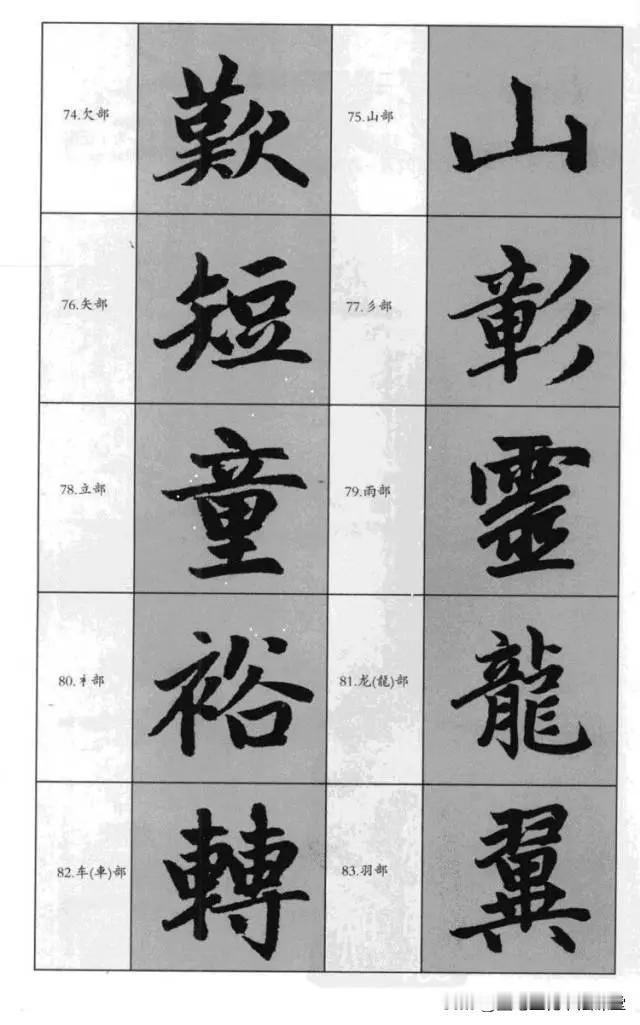 74.欠部 歎 75.山部 山
76.矢部 短 77.彡部 彰
78.立部 童 79.雨部 靈
80.衤部 裕 81.龙(龍)部 龍
82.车(車)部 轉 83.羽部 翼